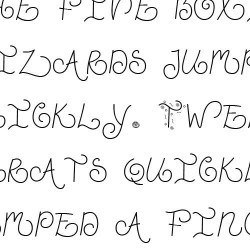 HE FIVE BOXI
IZARDS JUMP
ICKLY. TWE
RATS QUICKL
MPED A FINC